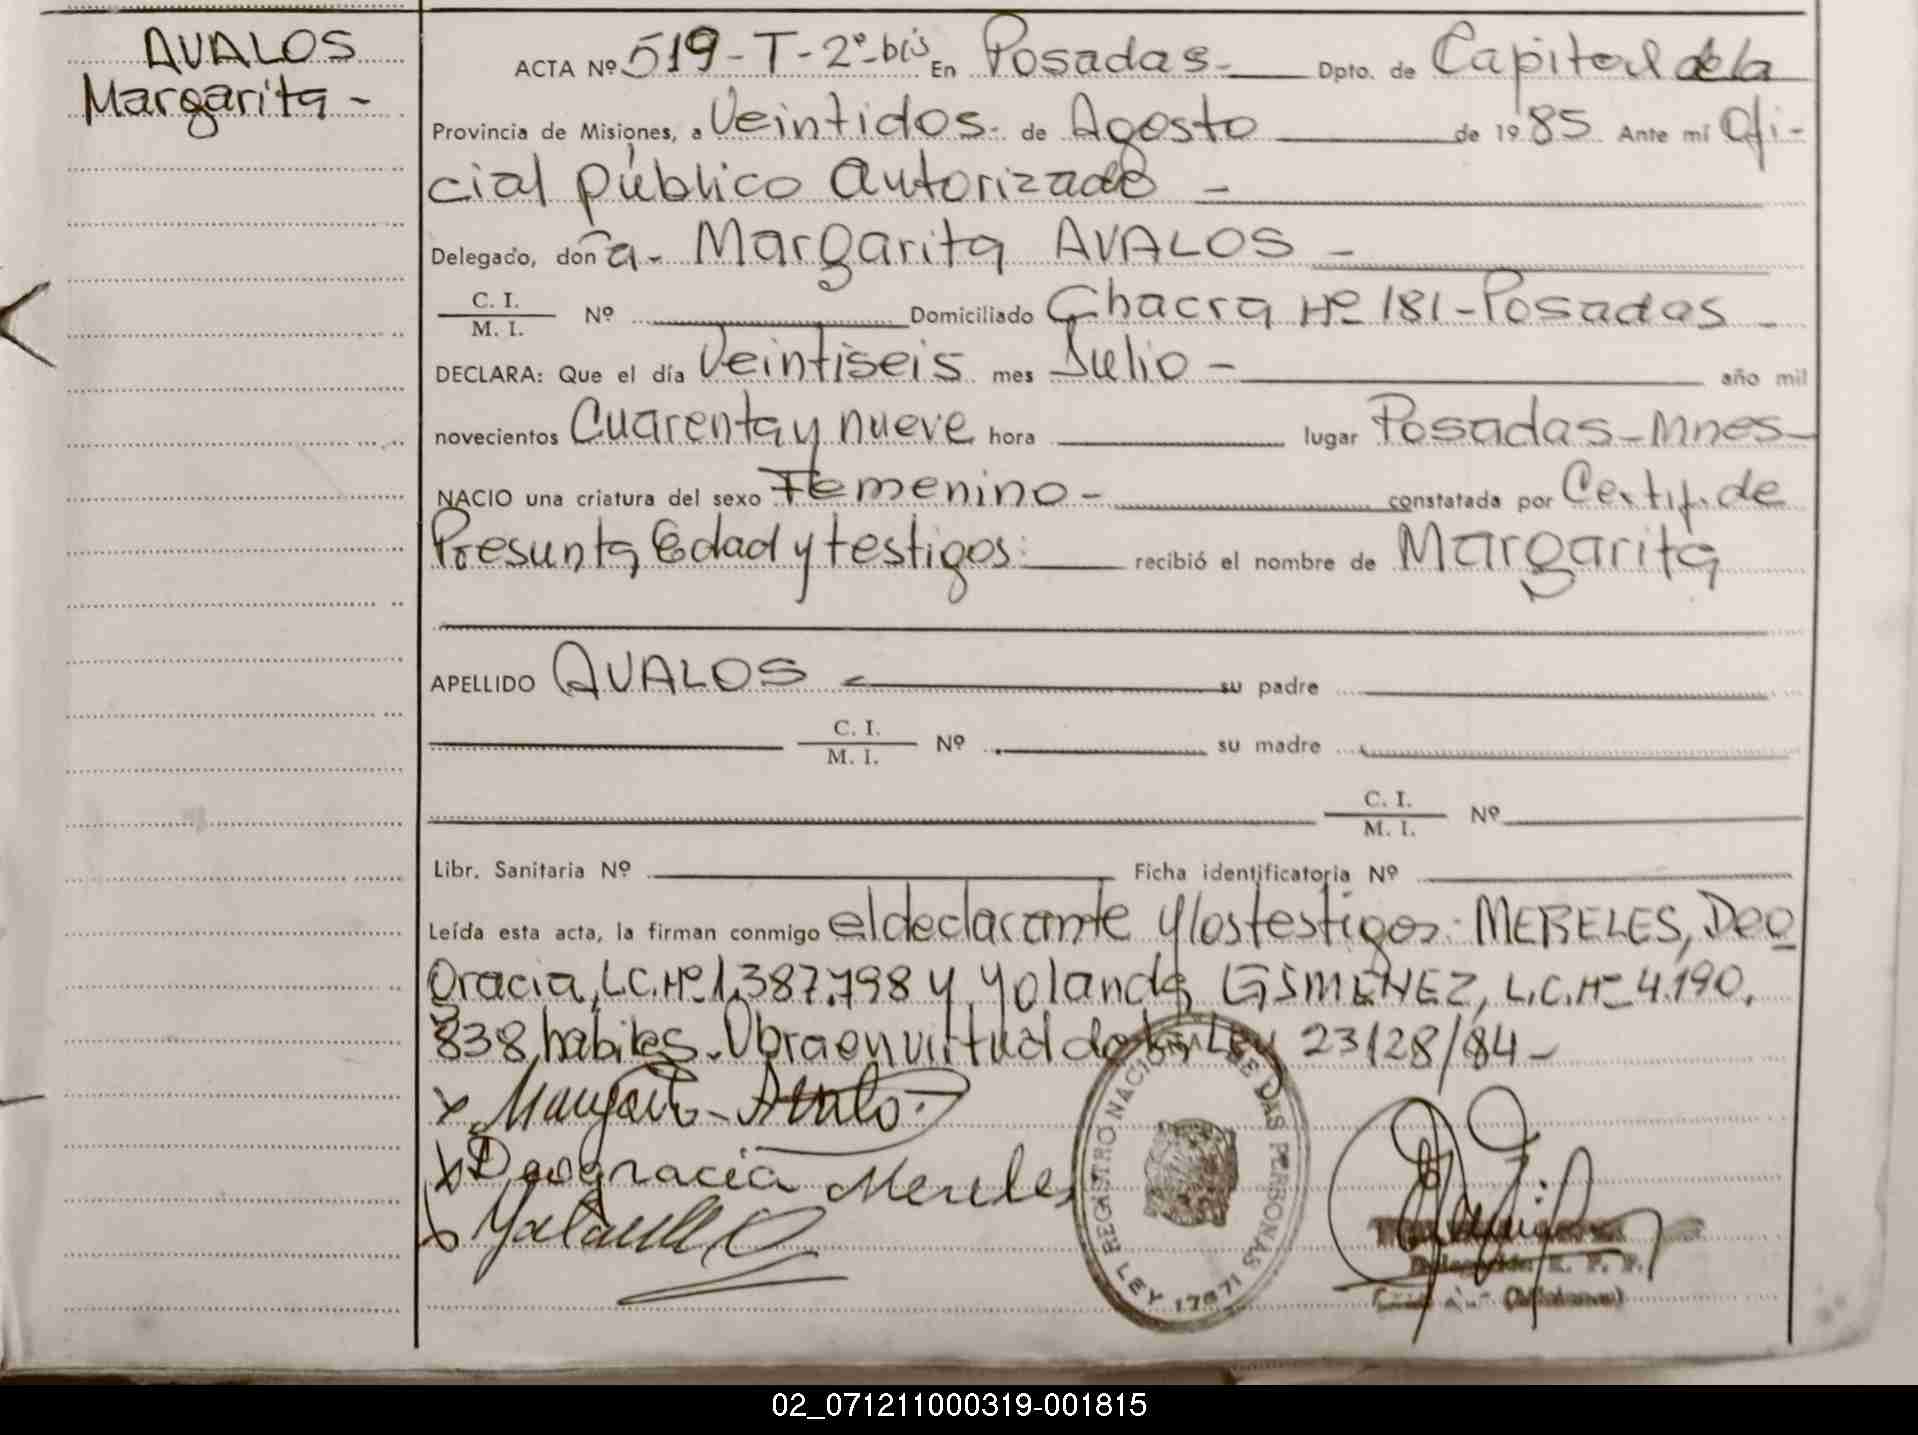 AVALOS
Margarita -
ACTA Nº 519-T-2º-bis En Posadas- Dpto. de Capital de la
Provincia de Misiones, a Veintidos- de Agosto de 1985 Ante mí Ofi-
cial público Autorizado -
Delegado, doña- Margarita AVALOS -
C. I.
M. I. Nº Domiciliado Chacra Nº 181-Posadas -
DECLARA: Que el día Veintiseis mes Julio - año mil
novecientos Cuarenta y nueve hora lugar Posadas-Mnes-
NACIO una criatura del sexo Femenino - constatada por Certif. de
Presunta Edad y testigos: recibió el nombre de Margarita
APELLIDO AVALOS - su padre
C. I.
M. I. Nº su madre
C. I.
M. I. Nº
Libr. Sanitaria Nº Ficha identificatoria Nº
Leída esta acta, la firman conmigo el declarante y los testigos: MERELES, Deo
gracia, L.C.Nº 1.387.798 y Yolanda GIMENEZ, L.C.Nº 4.190.
838, habiles. Obra en virtud de la Ley 23128/84-
x Margarita Avalo.
x Deogracia Mereles
x
REGISTRO NACIONAL DE LAS PERSONAS
LEY 17671
(Misiones)
02_071211000319-001815